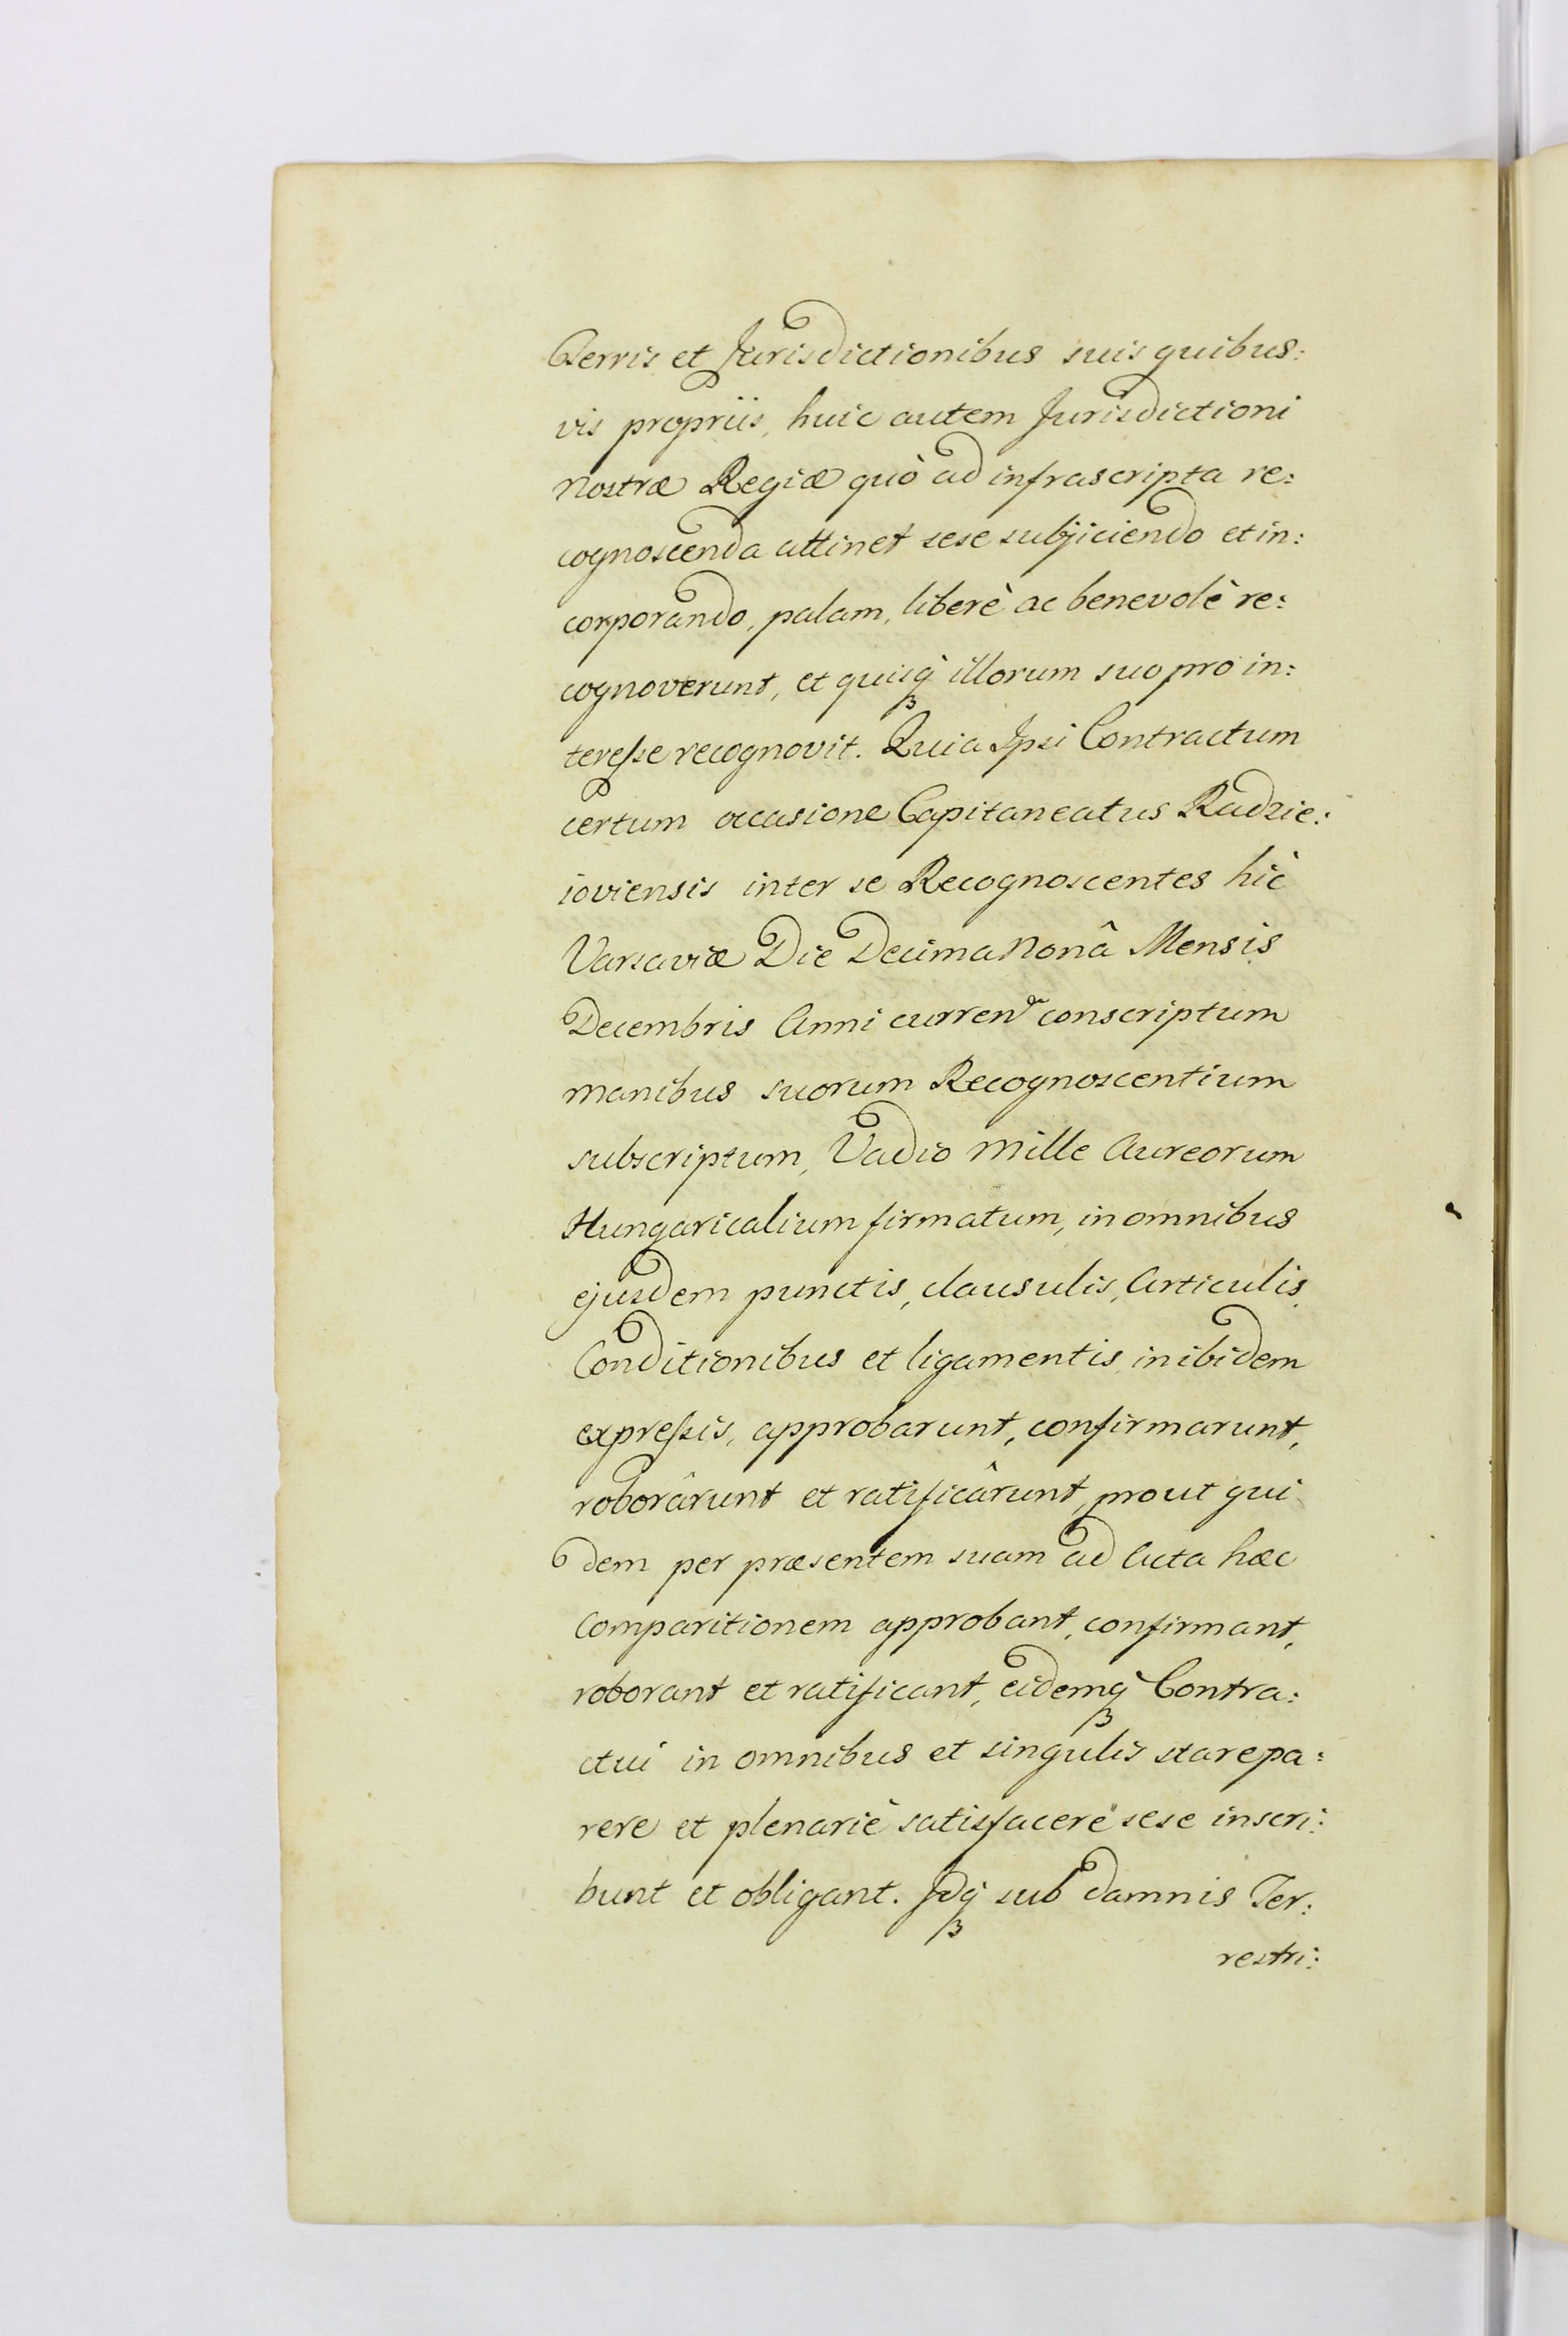 Terris et Jurisdictionibus suis quibus:
vis propriis, huic autem Jurisdictioni
Nostræ Regiæ quò ad infrascripta re:
cognoscenda attinet sese subjiciendo et in:
corporando, palam, liberè ac benevolè re:
cognoverunt, et quiisq illorum suo pro in:
teresse recognovit. Quia Ipsi Contractum
certum occasione Capitaneatus Radzie:
ioviensis inter se Recognoscentes hìc
Varsaviæ Die Decima Nonâ Mensis
Decembris Anni curren conscriptum
manibus suorum Recognoscentium
subscriptum, Vadio Mille Aureorum
Hungaricalium firmatum, in omnibus
ejusdem punctis, clausulis, Articulis,
Conditionibus et ligamentis inibidem
expressis, approbarunt, confirmarunt,
roborârunt et ratificârunt, prout qui
dem per præsentem suam ad Acta hæc
Comparitionem approbant, confirmant,
roborant et ratificant, eidemq Contra:
ctui in omnibus et singulis stare pa:
rere et plenariè satisfacere sese inscri:
bunt et obligant. Idq sub damnis Ter:
restri: